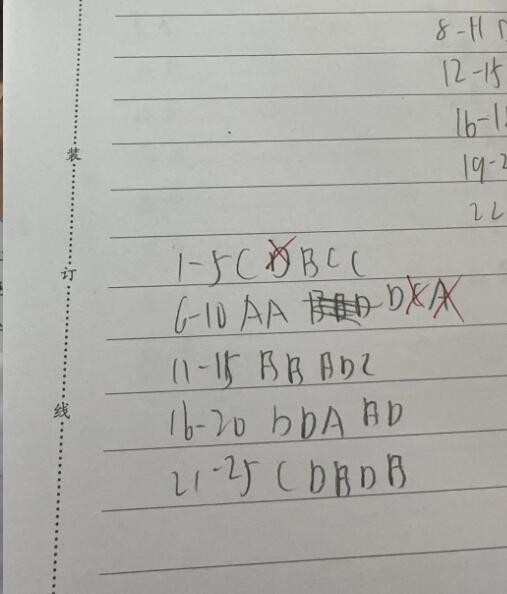 8-11
12-15
16-1
19-2
22
装
1-5 C D B C C
订
6-10 A A D C A
11-15 B B B D C
线
16-20 D D A B D
21-25 C D B D B